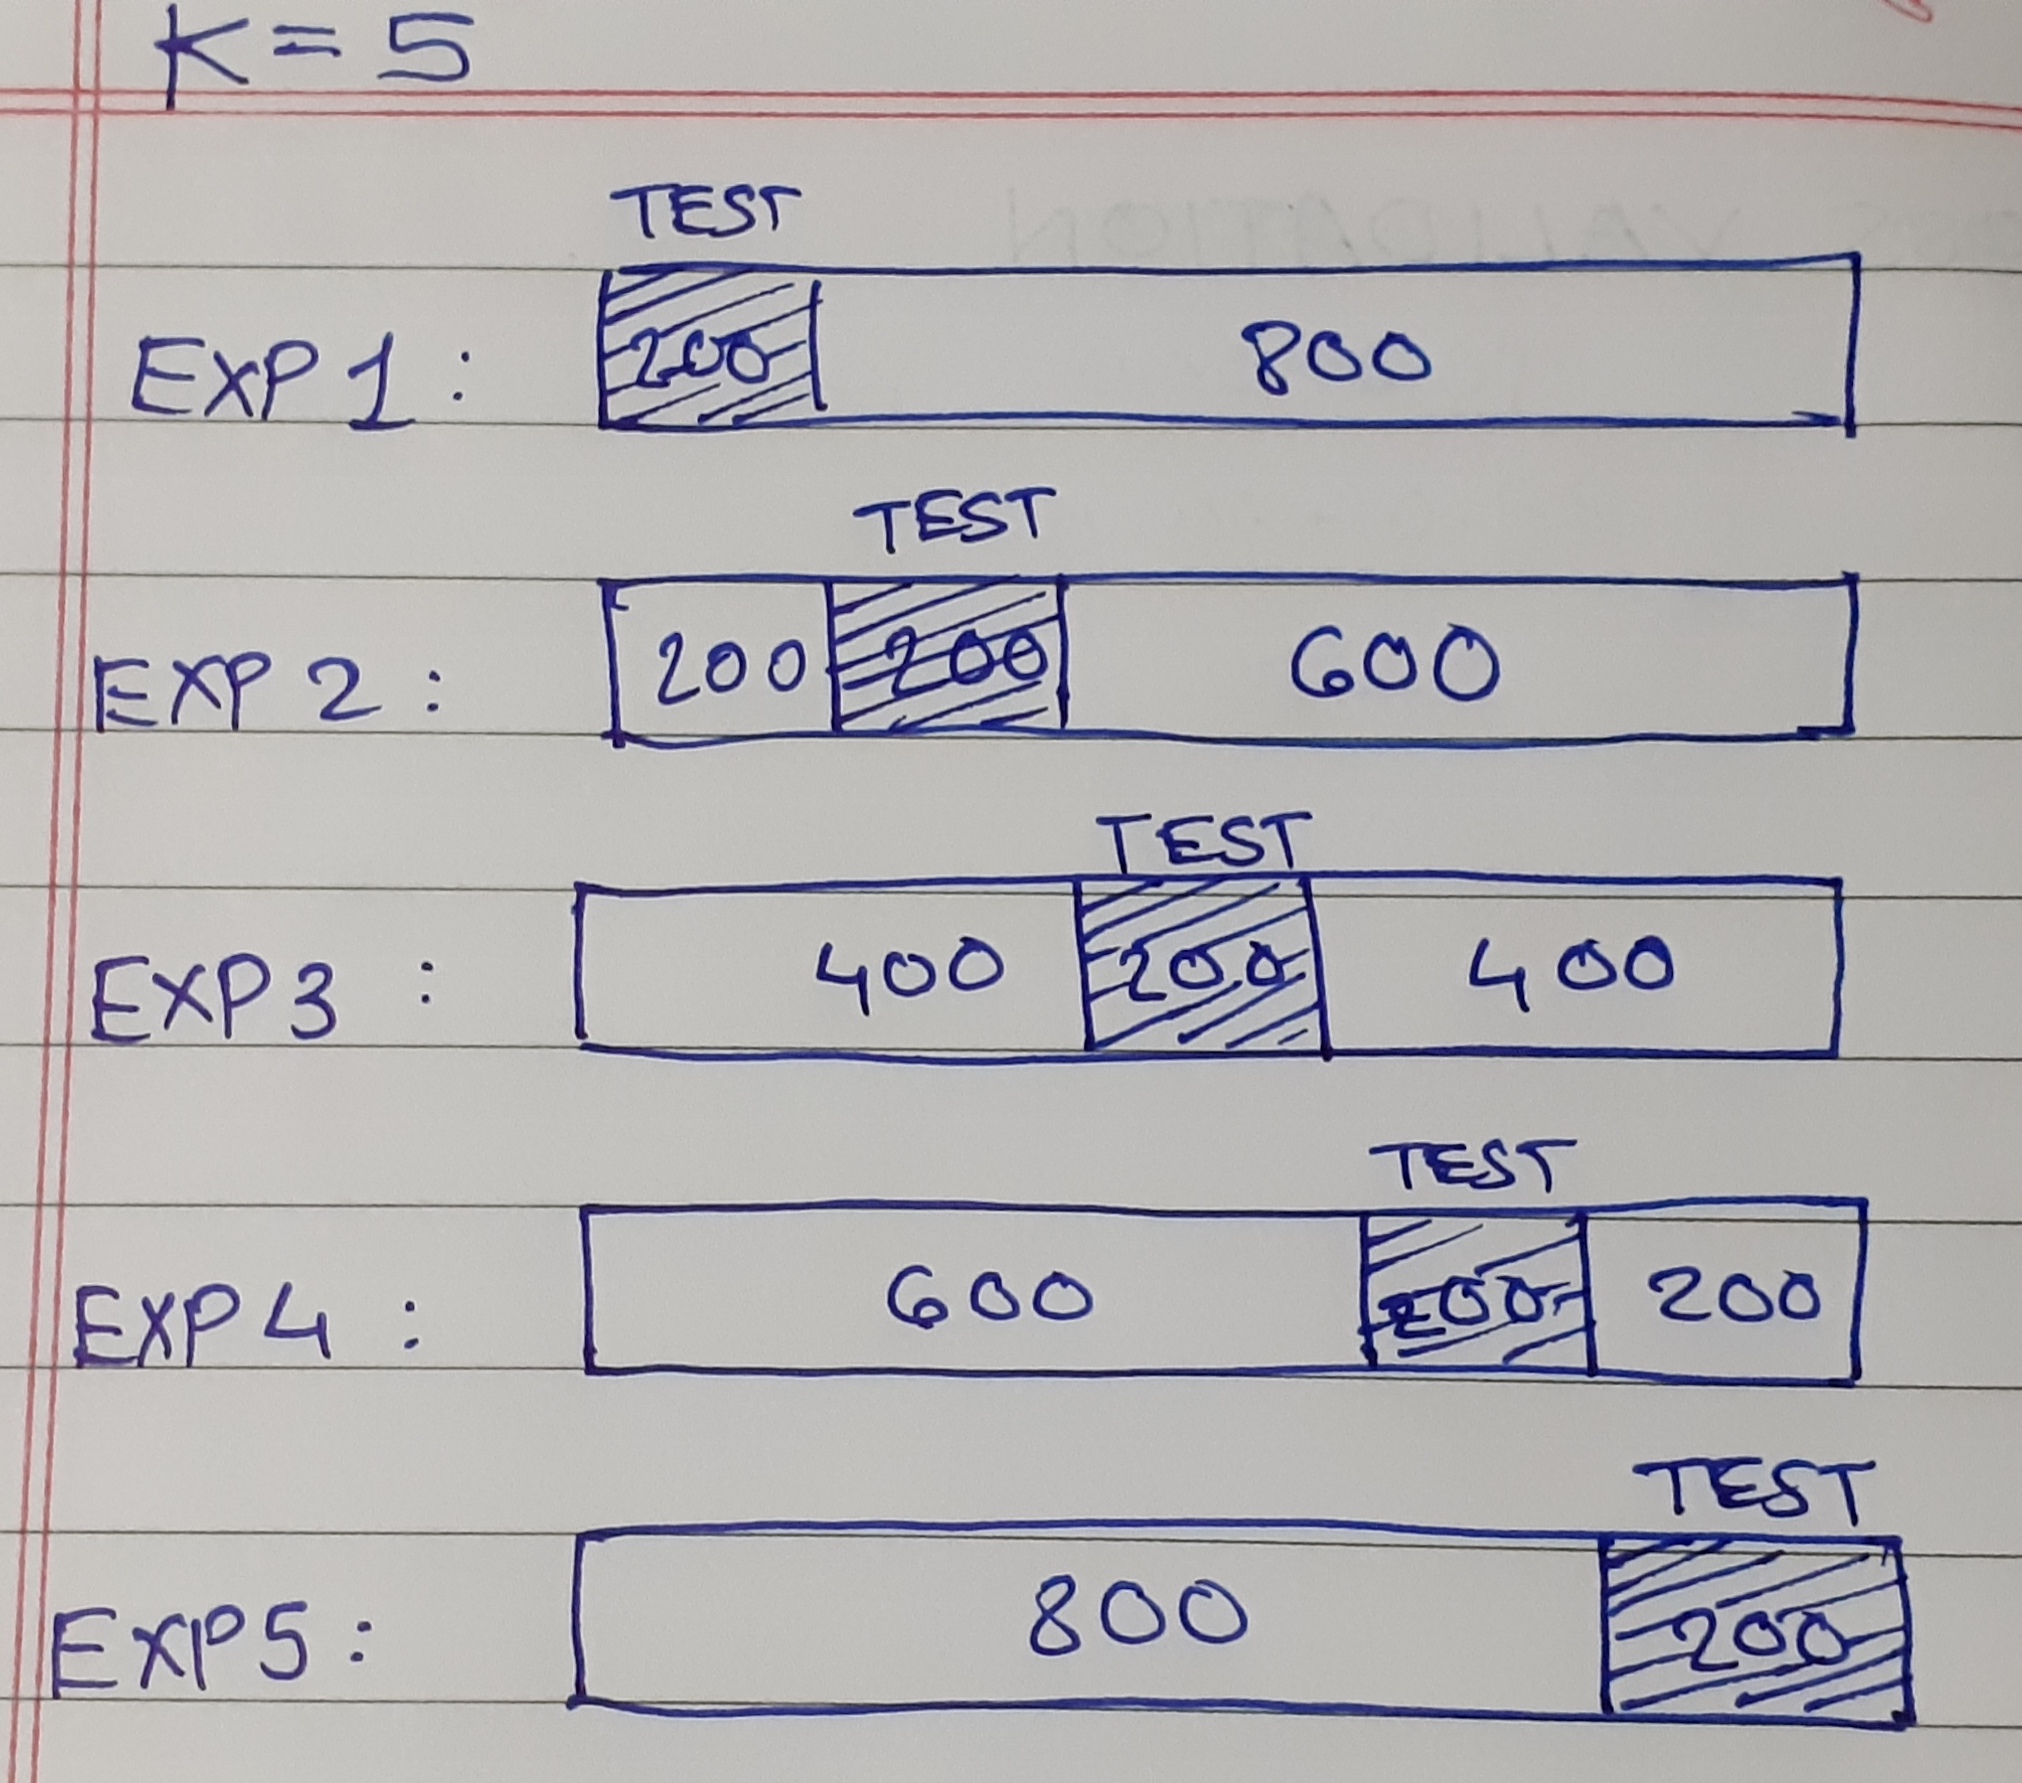 K = 5
TEST
EXP 1 : 200 800
TEST
EXP 2 : 200 200 600
TEST
EXP 3 : 400 200 400
TEST
EXP 4 : 600 200 200
TEST
EXP 5 : 800 200